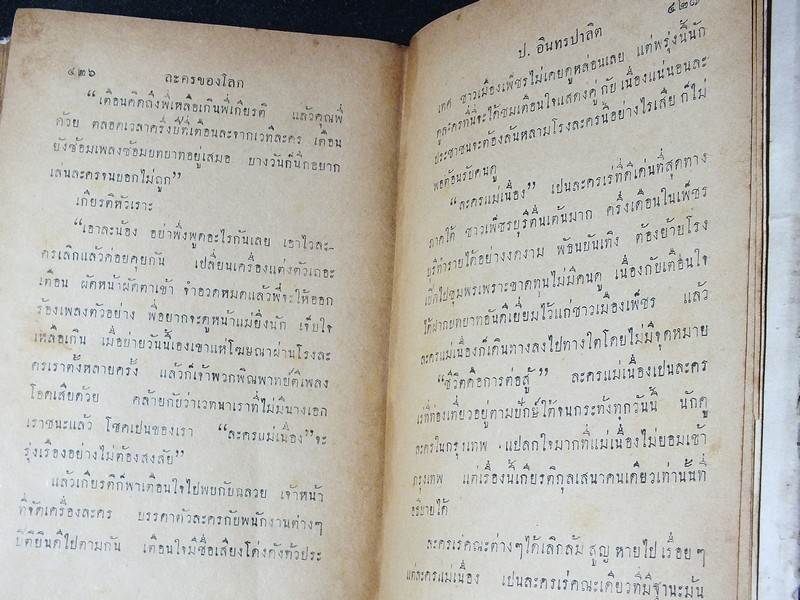 ๔๒๖
ละครของโลก
“เตือนคิดถึงพี่เหลือเกินพี่เกียรติ แล้วคุณพี่
ด้วย ตลอดเวลาครึ่งปีที่เตือนละจากเวทีละคร เตือน
ยังซ้อมเพลงซ้อมบทบาทอยู่เสมอ บางวันก็นึกอยาก
เล่นละครจนบอกไม่ถูก”
เกียรติหัวเราะ
“เอาละน้อง อย่าพึ่งพูดอะไรกันเลย เอาไว้ละ-
ครเลิกแล้วค่อยคุยกัน เปลี่ยนเครื่องแต่งตัวเถอะ
เตือน ผัดหน้าผัดตาเข้า จำอวดหมดแล้วพี่จะให้ออก
ร้องเพลงตัวอย่าง พี่อยากจะดูหน้าแม่ยิ่งนัก เจ็บใจ
เหลือเกิน เมื่อบ่ายวันนี้เองเขาแห่โฆษณาผ่านโรงละ
ครเราตั้งหลายครั้ง แล้วก็เจ้าพวกพิณพาทย์ตีเพลง
โอดเสียด้วย คล้ายกับว่าเวทนาเราที่ไม่มีนางเอก
เราชนะแล้ว โชคเป็นของเรา “ละครแม่เนื่อง” จะ
รุ่งเรืองอย่างไม่ต้องสงสัย”
แล้วเกียรติก็พาเตือนใจไปพบกับฉลวย เจ้าหน้า
ที่จัดเครื่องละคร บรรดาตัวละครกับพนักงานต่างๆ
ปีติยินดีไปตามกัน เตือนใจมีชื่อเสียงโด่งดังทั่วประ
๔๒๗
ป. อินทรปาลิต
เทศ ชาวเมืองเพ็ชรไม่เคยดูหล่อนเลย แต่พรุ่งนี้นัก
ดูละครที่นี่จะได้ชมเตือนใจแสดงคู่กับเนื่องแน่นอนละ
ประชาชนจะต้องล้นหลามโรงละครนี้อย่างไรเสีย ก็ไม่
พอต้อนรับคนดู
“ละครแม่เนื่อง” เป็นละครเร่ที่ดีเด่นที่สุดทาง
ภาคใต้ ชาวเพ็ชรบุรีตื่นเต้นมาก ครึ่งเดือนในเพ็ชร
บุรีทำรายได้อย่างงดงาม พัธนบันเทิง ต้องย้ายโรง
เปิดไปชุมพรเพราะขาดทุนไม่มีคนดู เนื่องกับเตือนใจ
ได้ฝากบทบาทอันดีเยี่ยมไว้แก่ชาวเมืองเพ็ชร แล้ว
ละครแม่เนื่องก็เดินทางลงไปทางใต้โดยไม่มีจุดหมาย
“ชีวิตคือการต่อสู้” ละครแม่เนื่องเป็นละคร
เร่ที่ท่องเที่ยวอยู่ตามปักษ์ใต้จนกระทั่งทุกวันนี้ นักดู
ละครในกรุงเทพ แปลกใจมากที่แม่เนื่องไม่ยอมเข้า
กรุงเทพ แต่เรื่องนี้เกียรติกุลเสนาคนเดียวเท่านั้นที่
อธิบายได้
ละครเร่คณะต่างๆ ได้เลิกล้ม สูญ หายไป เรื่อยๆ
แต่ละครแม่เนื่อง เป็นละครเร่คณะเดียวที่มีฐานะมั่น